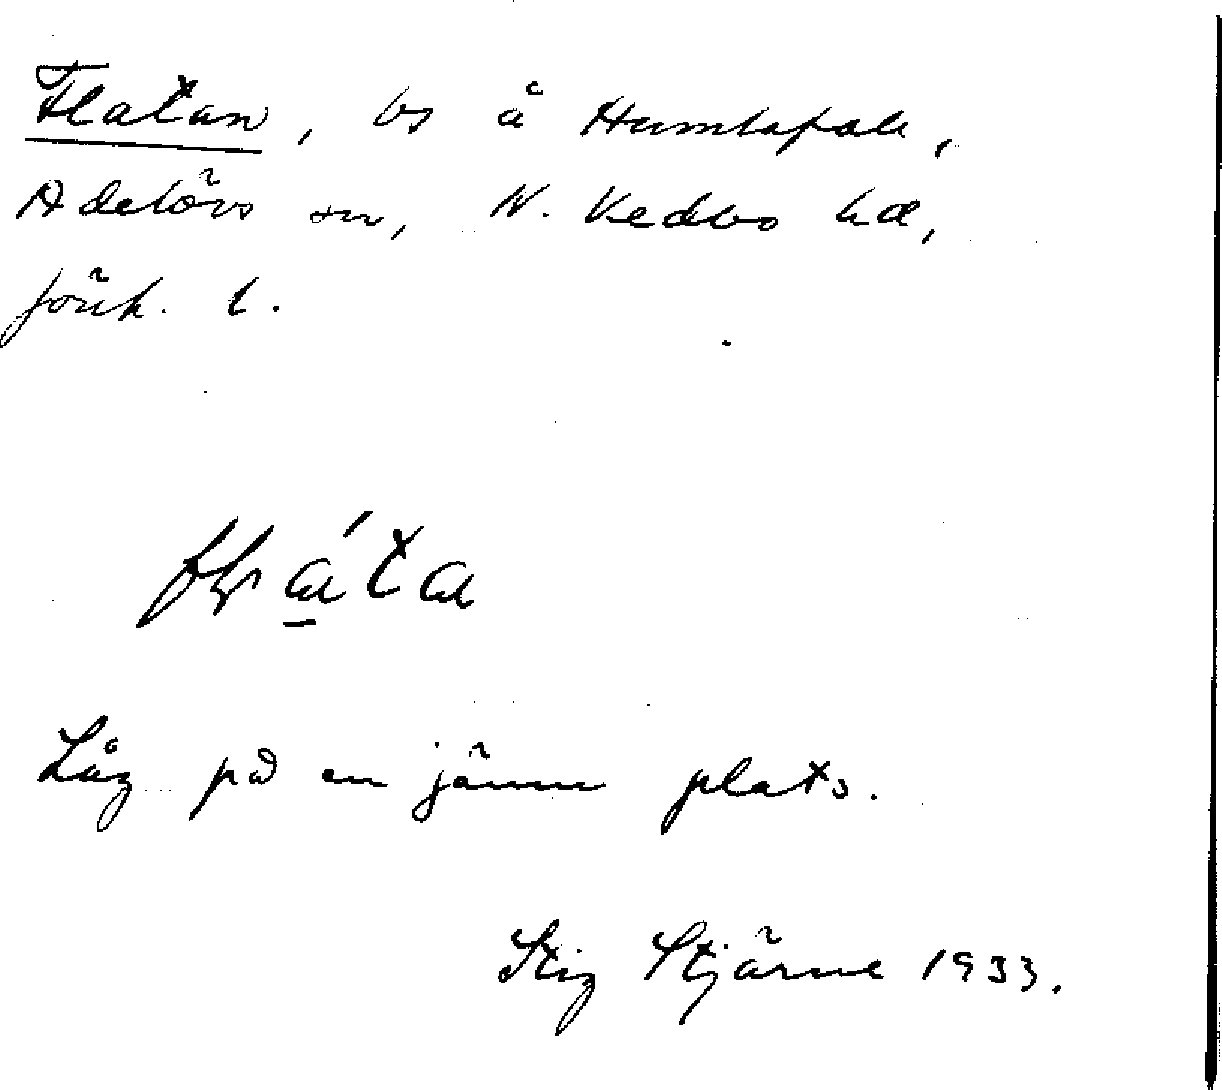 Flatan, bs å Humlapäll,
Adelövs sn, N. Vedbo hd,
Jönk. l.
flata
Låg på en jämn plats.
Stig Stjärne 1933.